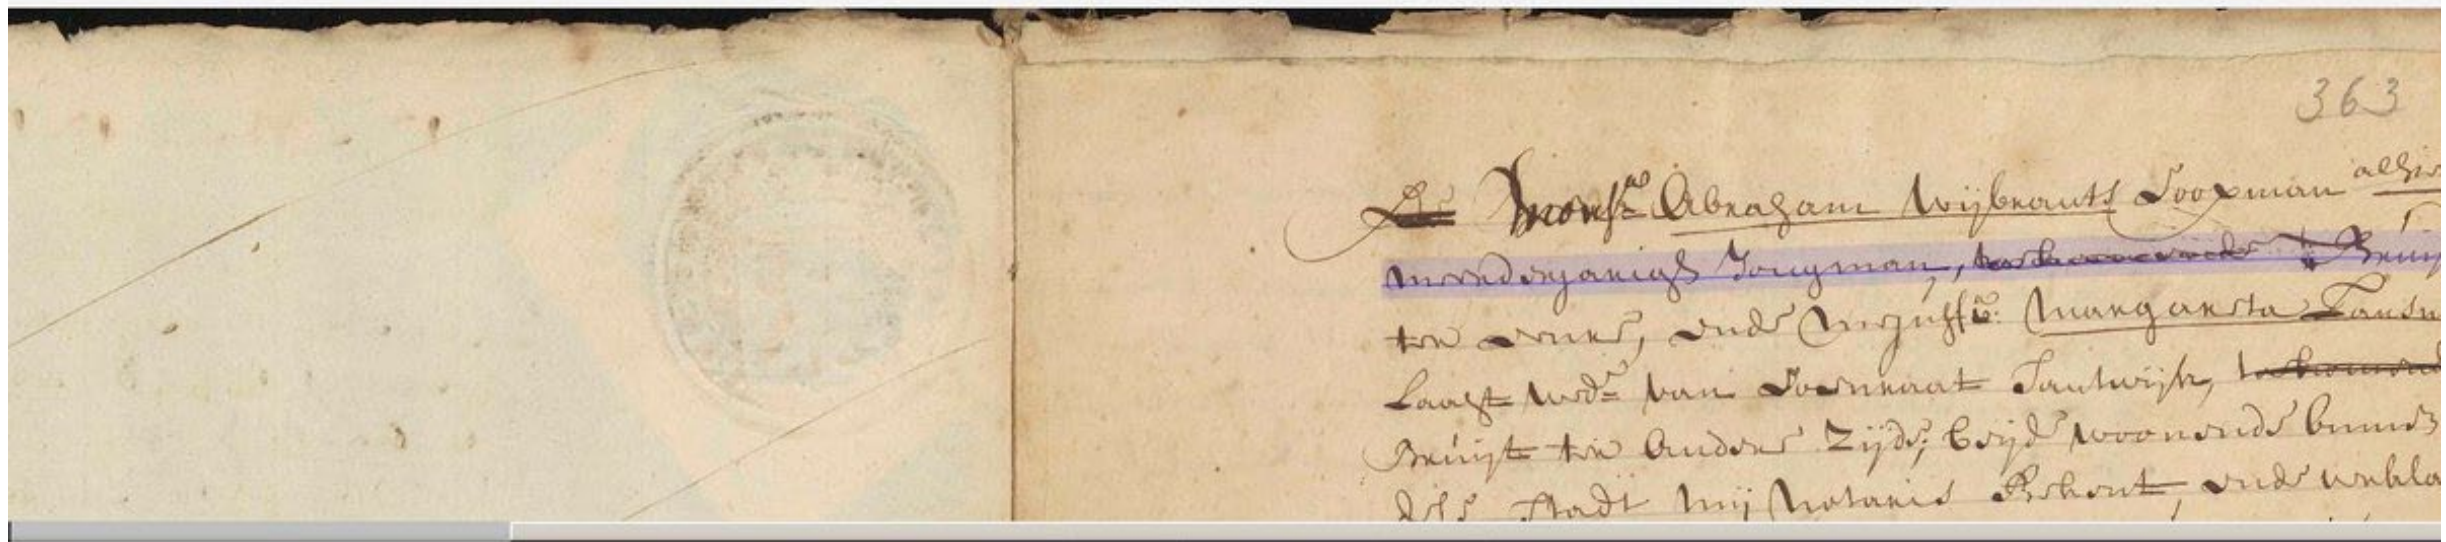 363
De Monsr. Abraham Wijbrants Coopman alhier
meerderjarigh Jongman, te Bruÿ
ter eenre, ende Mejuffre. Margareta
Laast wede. van Coenraat Santwijk,
Bruijt ter Andere Zijde, beijde woonende binnen
dese stadt mij Notaris Bekent, ende verkla